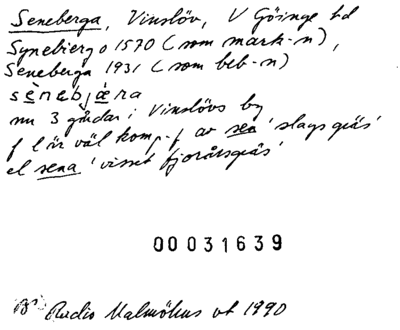 Seneberga, Vinslöv, V Göinge hd
Synebierg o 1570 (som mark-n),
Seneberga 1931 (som beb-n)
sènebjæra
nu 3 gårdar i Vinslövs by
f l är väl komp.-f av sen 'slags gräs'
el sena 'visset fjorårsgräs'
00031639
Radio Malmöhus vt 1990